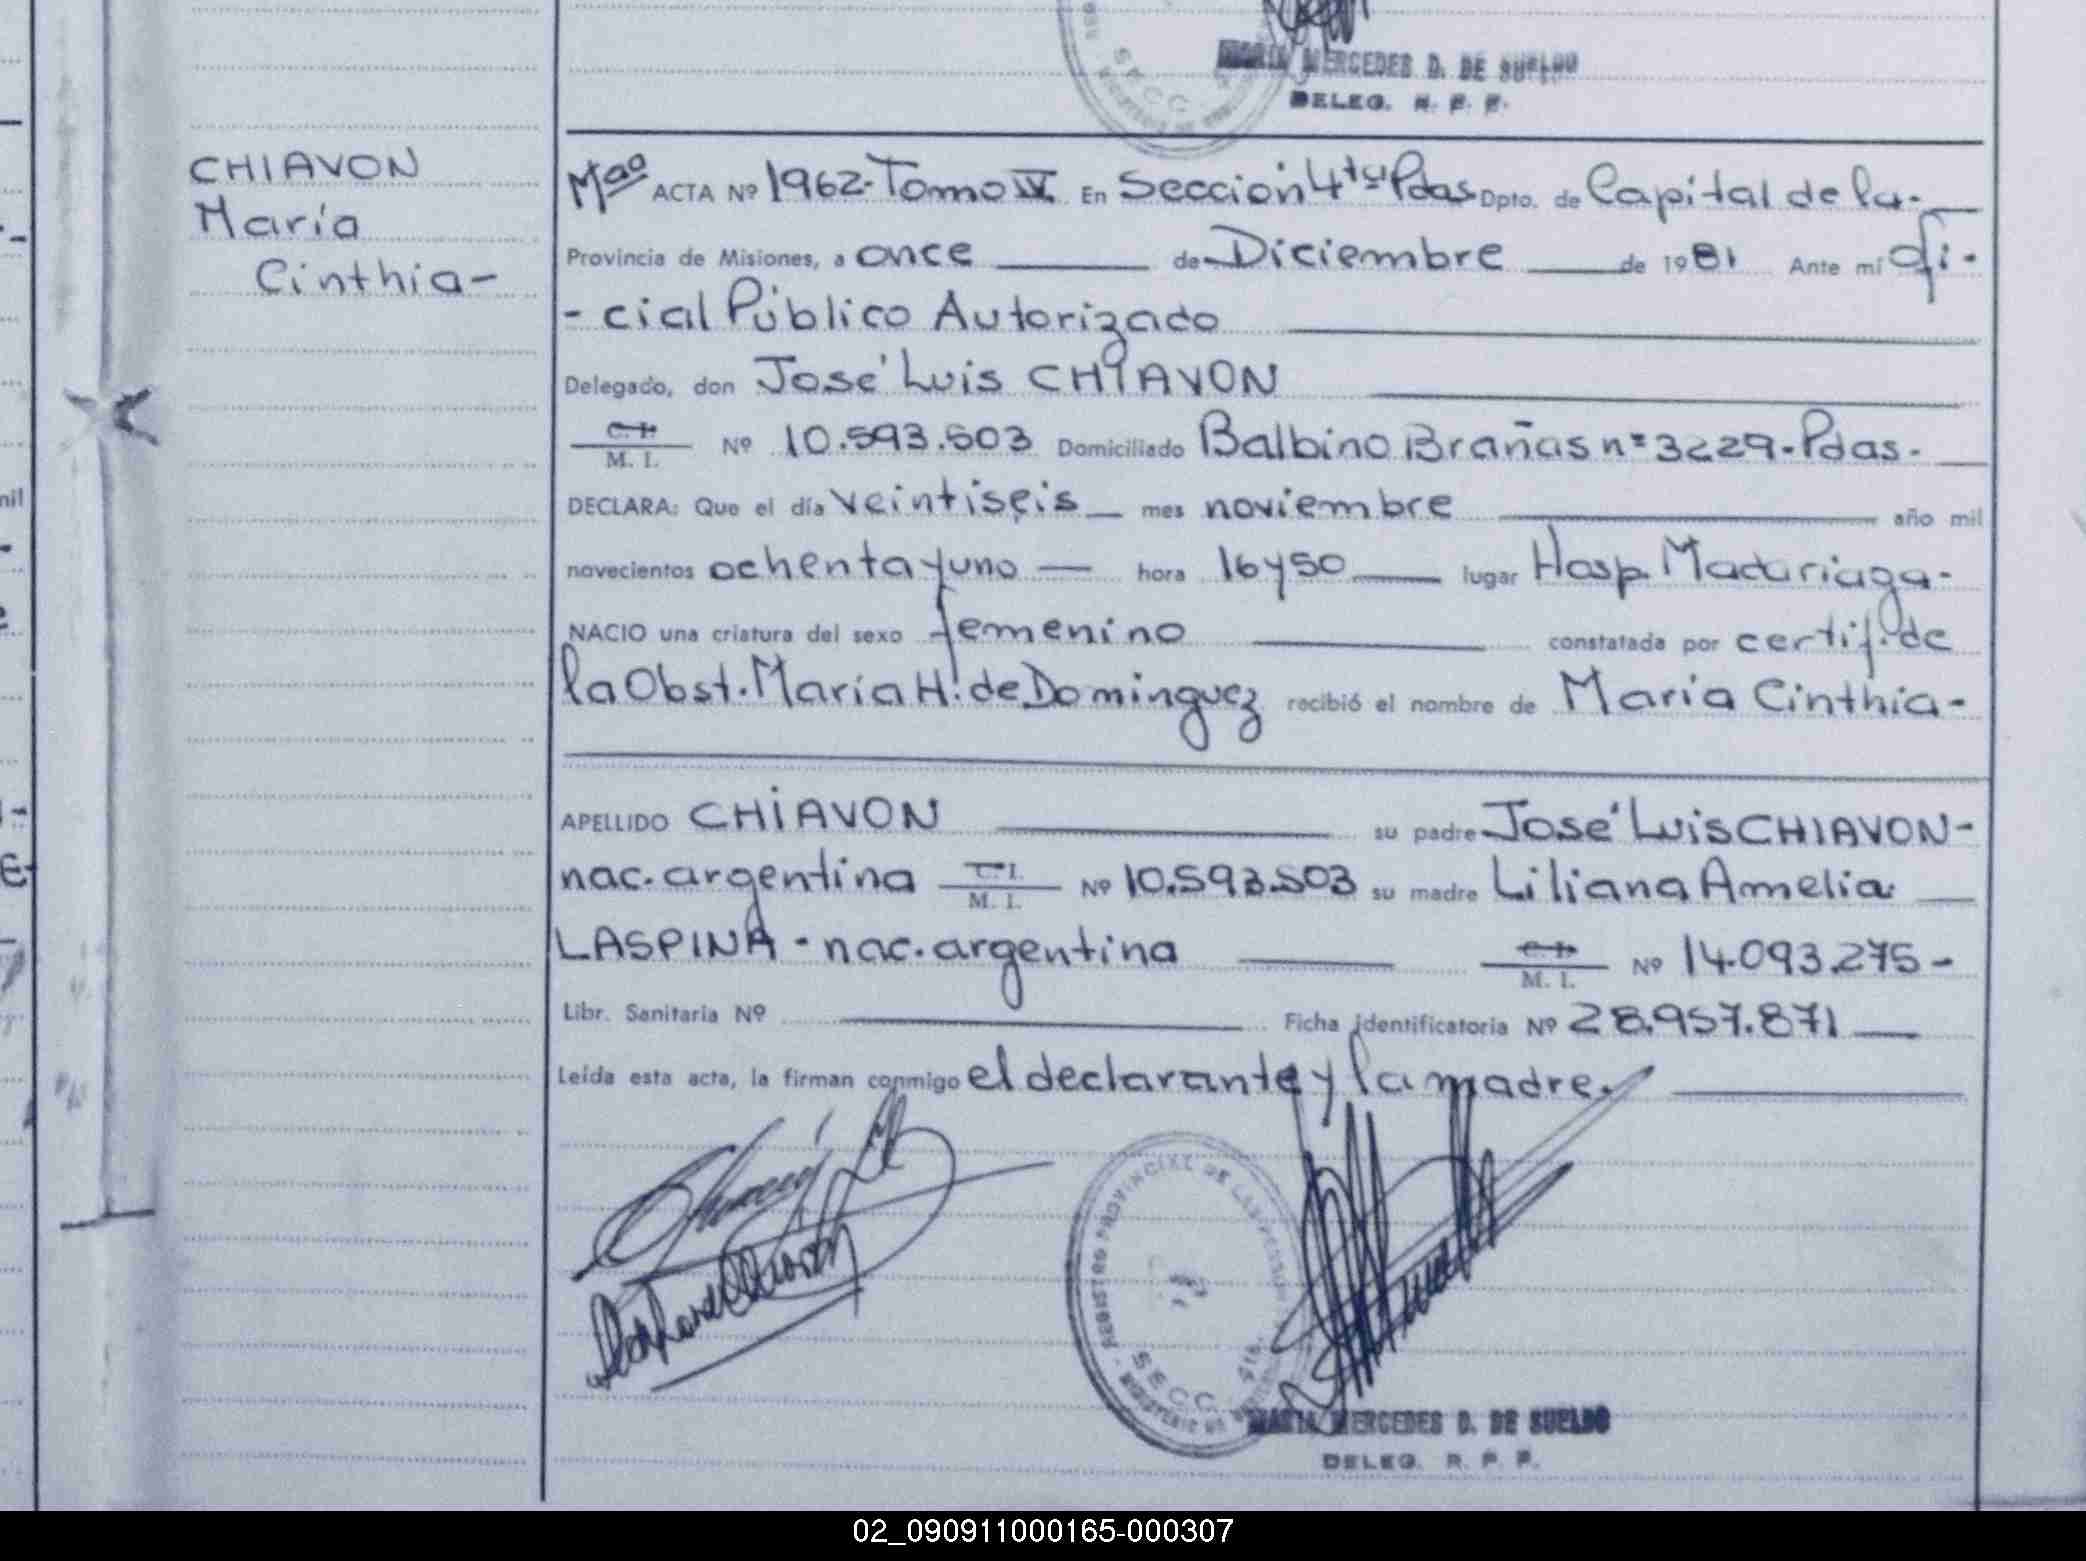 MARIA MERCEDES D. DE SUELDO
DELEG. R. P. P.
CHIAVON
María
Cinthia-
ACTA Nº 1962-Tomo IV En Sección 4ta Pdas Dpto. de Capital de la-
Provincia de Misiones, a once de Diciembre de 1981 Ante mí Ofi-
-cial Público Autorizado
Delegado, don José Luis CHIAVON
C. I.
M. I. Nº 10.593.503 Domiciliado Balbino Brañas nº 3229-Pdas-
DECLARA: Que el día veintiseis mes noviembre año mil
novecientos ochenta y uno hora 16 y 50 lugar Hosp. Madariaga-
NACIO una criatura del sexo femenino constatada por certif. de
la Obst. María H. de Dominguez recibió el nombre de María Cinthia-
APELLIDO CHIAVON su padre José Luis CHIAVON-
nac. argentina C. I.
M. I. Nº 10.593.503 su madre Liliana Amelia
LASPINA - nac. argentina C. I.
M. I. Nº 14.093.275-
Libr. Sanitaria Nº Ficha identificatoria Nº 28.957.871
Leída esta acta, la firman conmigo el declarante y la madre.
REGISTRO PROVINCIAL DE LAS PERSONAS
SECC. 4ta.
MARIA MERCEDES D. DE SUELDO
DELEG. R. P. P.
02_090911000165-000307